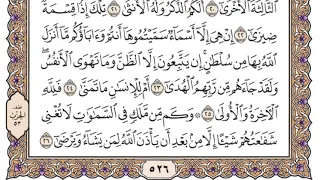 ٱلثَّالِثَةَ ٱلۡأُخۡرَىٰٓ ٢٠ أَلَكُمُ ٱلذَّكَرُ وَلَهُ ٱلۡأُنثَىٰ ٢١ تِلۡكَ إِذٗا قِسۡمَةٞ
ضِيزَىٰٓ ٢٢ إِنۡ هِيَ إِلَّآ أَسۡمَآءٞ سَمَّيۡتُمُوهَآ أَنتُمۡ وَءَابَآؤُكُم مَّآ أَنزَلَ
ٱللَّهُ بِهَا مِن سُلۡطَٰنٍۚ إِن يَتَّبِعُونَ إِلَّا ٱلظَّنَّ وَمَا تَهۡوَى ٱلۡأَنفُسُۖ
وَلَقَدۡ جَآءَهُم مِّن رَّبِّهِمُ ٱلۡهُدَىٰٓ ٢٣ أَمۡ لِلۡإِنسَٰنِ مَا تَمَنَّىٰ ٢٤ فَلِلَّهِ
ٱلۡأٓخِرَةُ وَٱلۡأُولَىٰ ٢٥ ۞ وَكَم مِّن مَّلَكٖ فِي ٱلسَّمَٰوَٰتِ لَا تُغۡنِي
شَفَٰعَتُهُمۡ شَيۡـًٔا إِلَّا مِنۢ بَعۡدِ أَن يَأۡذَنَ ٱللَّهُ لِمَن يَشَآءُ وَيَرۡضَىٰٓ ٢٦
الحزب
٥٣
٥٢٦